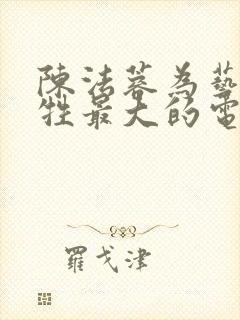 陳法蓉為藝
牲最大的電
羅戈津